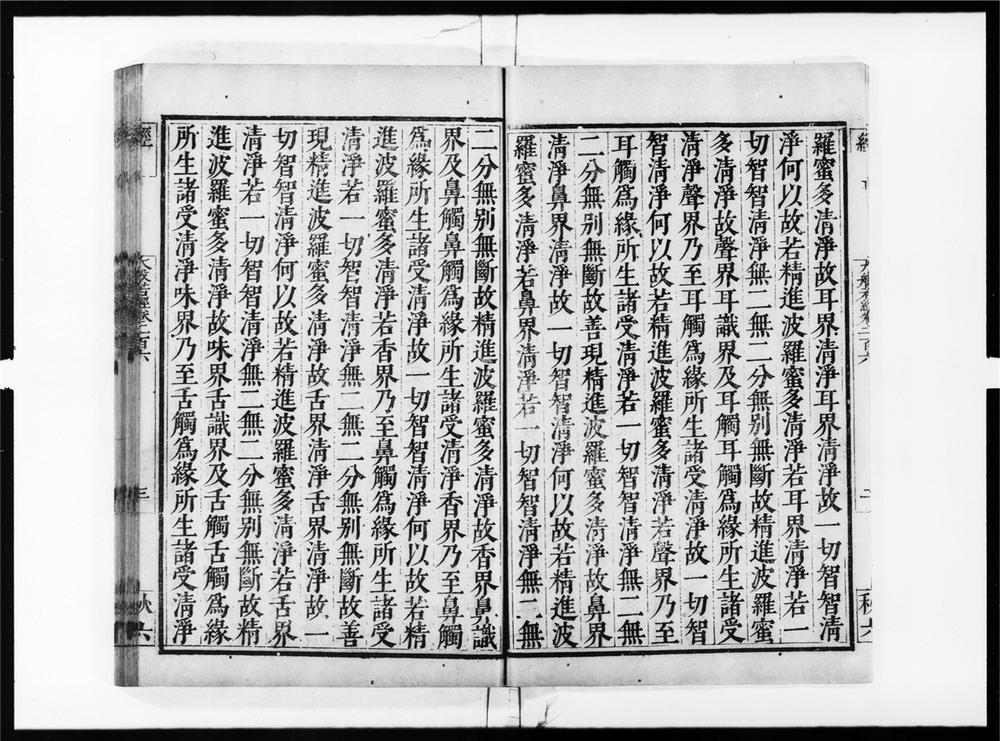 羅蜜多清淨故耳界清淨耳界清淨故一切智智清
淨何以故若精進波羅蜜多清淨若耳界清淨若一
切智智清淨無二無二分無別無斷故精進波羅蜜
多清淨故聲界耳識界及耳觸耳觸爲緣所生諸受
清淨聲界乃至耳觸爲緣所生諸受清淨故一切智
智清淨何以故若精進波羅蜜多清淨若聲界乃至
耳觸爲緣所生諸受清淨若一切智智清淨無二無
二分無別無斷故善現精進波羅蜜多清淨故鼻界
清淨鼻界清淨故一切智智清淨何以故若精進波
羅蜜多清淨若鼻界清淨若一切智智清淨無二無
二分無別無斷故精進波羅蜜多清淨故香界鼻識
界及鼻觸鼻觸爲緣所生諸受清淨香界乃至鼻觸
爲緣所生諸受清淨故一切智智清淨何以故若精
進波羅蜜多清淨若香界乃至鼻觸爲緣所生諸受
清淨若一切智智清淨無二無二分無別無斷故善
現精進波羅蜜多清淨故舌界清淨舌界清淨故一
切智智清淨何以故若精進波羅蜜多清淨若舌界
清淨若一切智智清淨無二無二分無別無斷故精
進波羅蜜多清淨故味界舌識界及舌觸舌觸爲緣
所生諸受清淨味界乃至舌觸爲緣所生諸受清淨
經
大般若經卷二百六
三
秋六